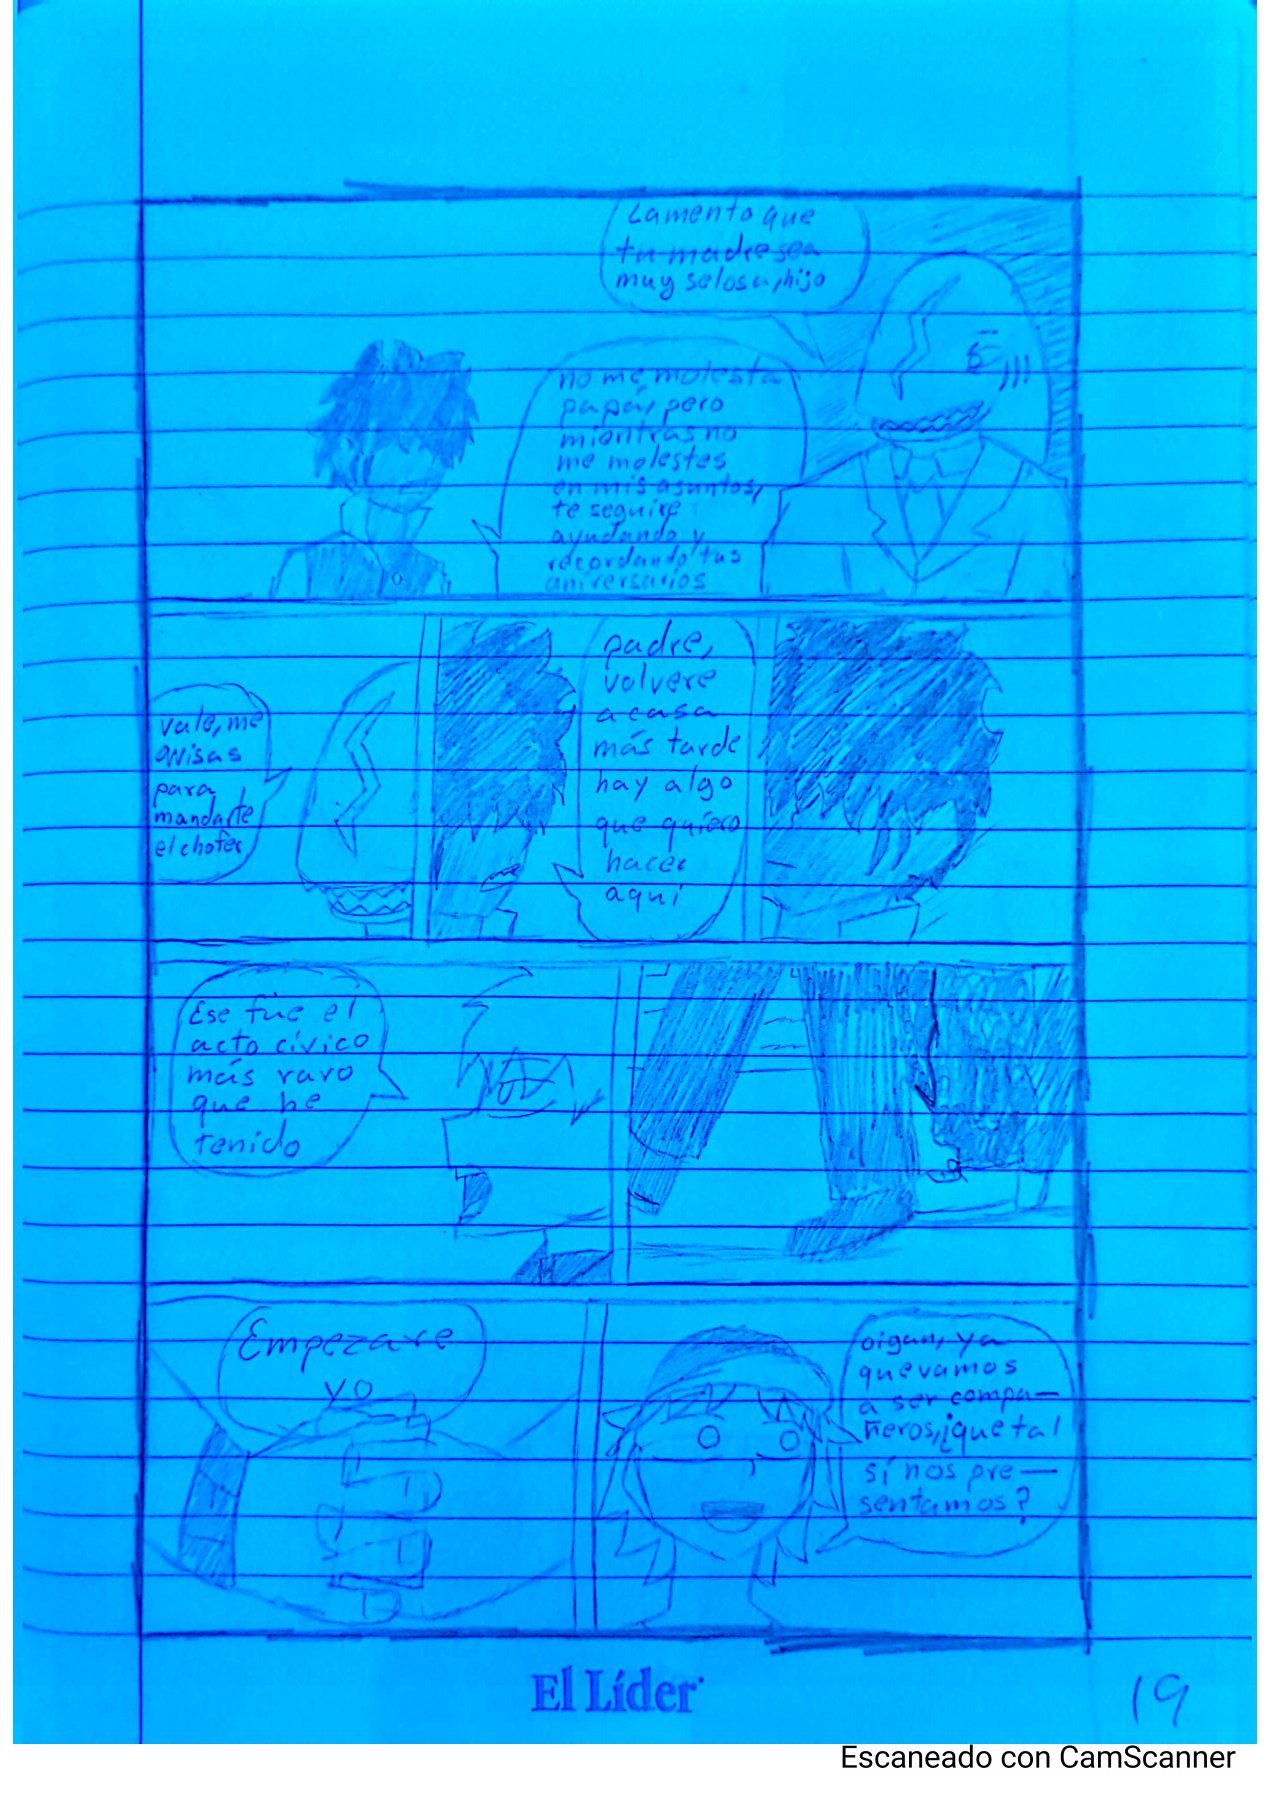 Lamento que
tu madre sea
muy selosa, hijo
no me molesta
papá, pero
mientras no
me molestes
en mis asuntos,
te seguire
ayudando y
recordando tus
aniversarios
padre,
volvere
a casa
más tarde
hay algo
que quiero
hacer
aquí
vale, me
avisas
para
mandarte
el chofer
Ese fue el
acto cívico
más raro
que he
tenido
oigan, ya
que vamos
a ser compa-
ñeros, ¿que tal
sí nos pre-
sentamos?
Empezare
yo
El Líder
19
Escaneado con CamScanner